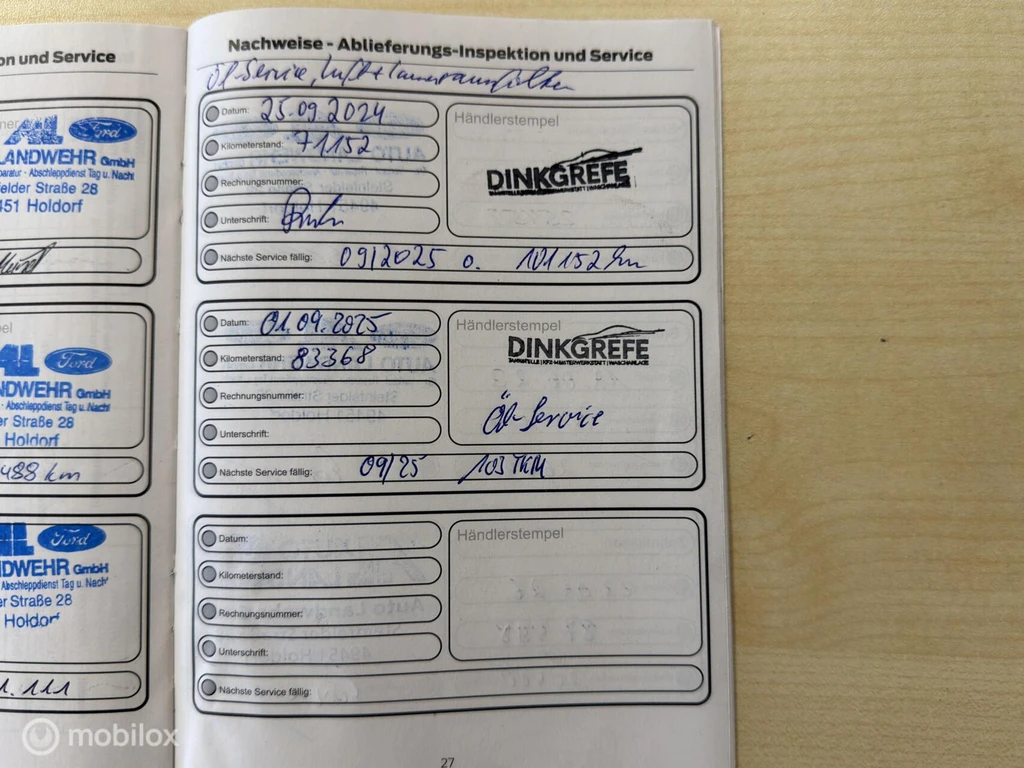 on und Service
Ford
LANDWEHR GmbH
paratur - Abschleppdienst Tag u. Nacht
felder Straße 28
451 Holdorf
pel
AL Ford
NDWEHR GmbH
- Abschleppdienst Tag u. Nacht
er Straße 28
Holdorf
488 km
Ford
NDWEHR GmbH
Abschleppdienst Tag u. Nach
er Straße 28
Holdorf
1.111
Nachweise - Ablieferungs-Inspektion und Service
Öl-Service, Luft +
Datum: 25.09.2024
Kilometerstand: 71152
Rechnungsnummer:
Unterschrift:
Händlerstempel
DINKGREFE
Nächste Service fällig: 09/2025 o. 101152 km
Datum: 01.09.2025
Kilometerstand: 83368
Rechnungsnummer:
Unterschrift:
Händlerstempel
DINKGREFE
TANKSTELLE | KFZ-MEISTERWERKSTATT | WASCHANLAGE
Öl-Service
Nächste Service fällig: 09/25 103 TKM
Datum:
Kilometerstand:
Rechnungsnummer:
Unterschrift:
Händlerstempel
Nächste Service fällig:
27
mobilox